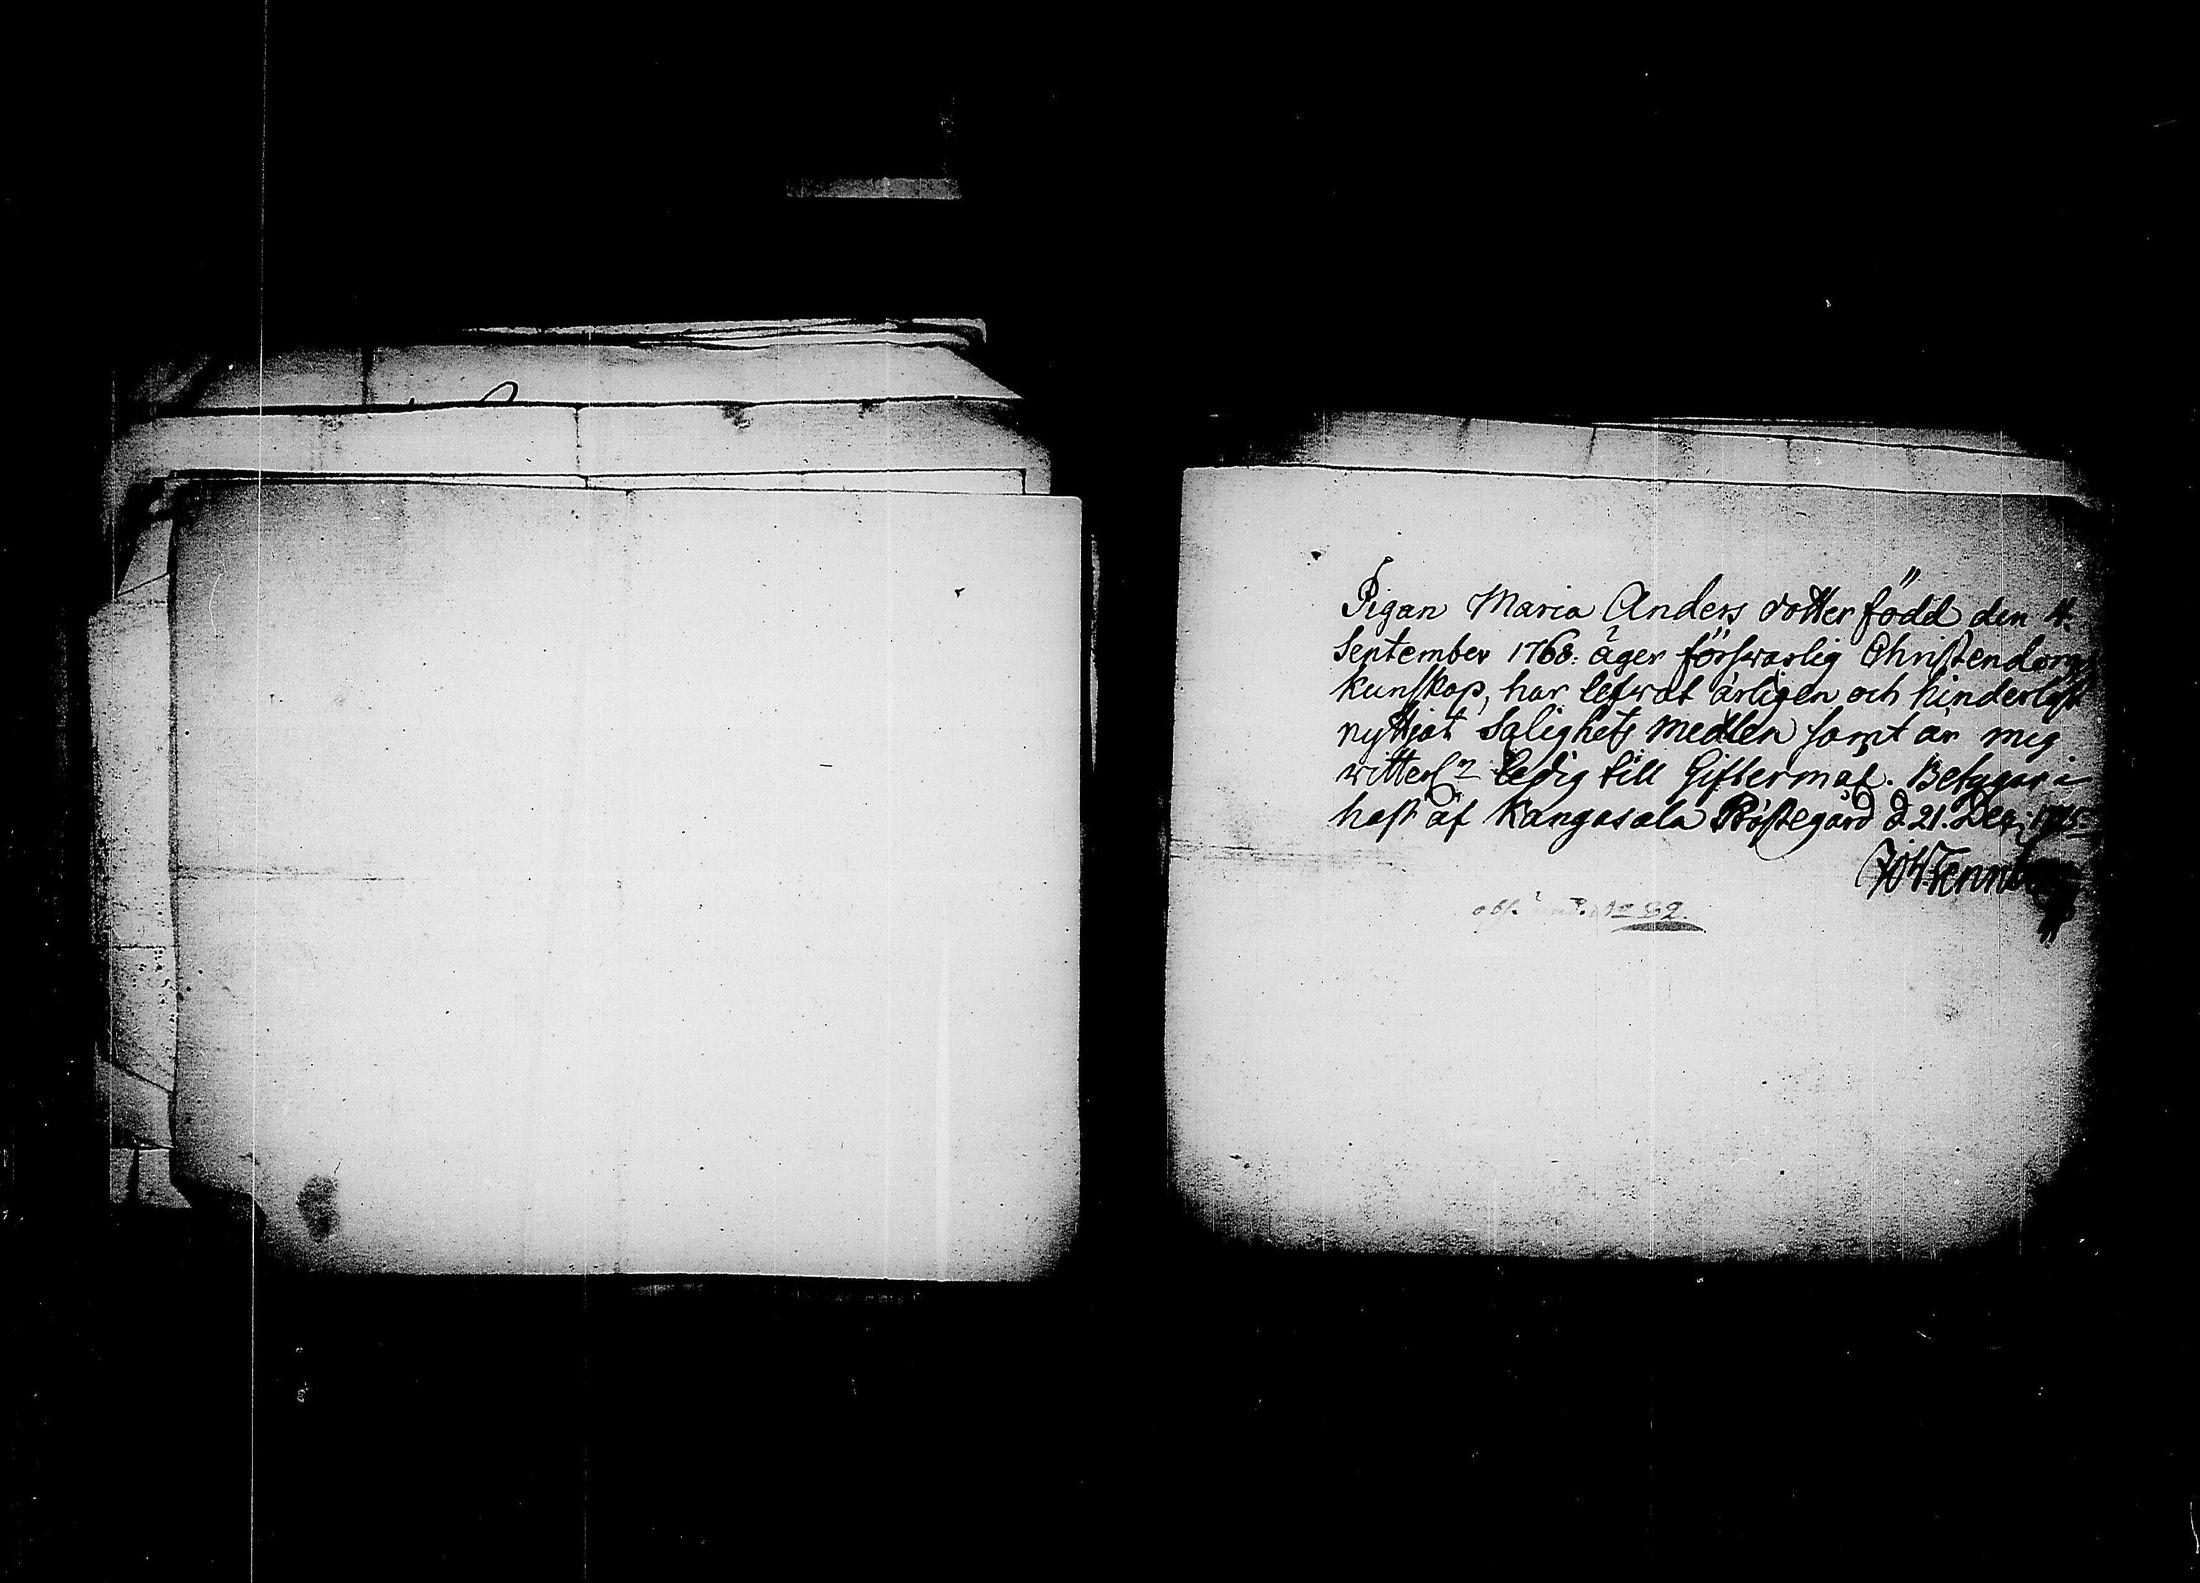 Pigan Maria Anders dotter född den 4.
September 1768: äger förswarlig Christendoms
kunskap, har lefwat ärligen och hinderlöst
nyttjat Salighets medlen samt är mig
witterl:n ledig till Giftermål. Betygar i
hast af Kangasala Prästegård d 21. Dec: 1795